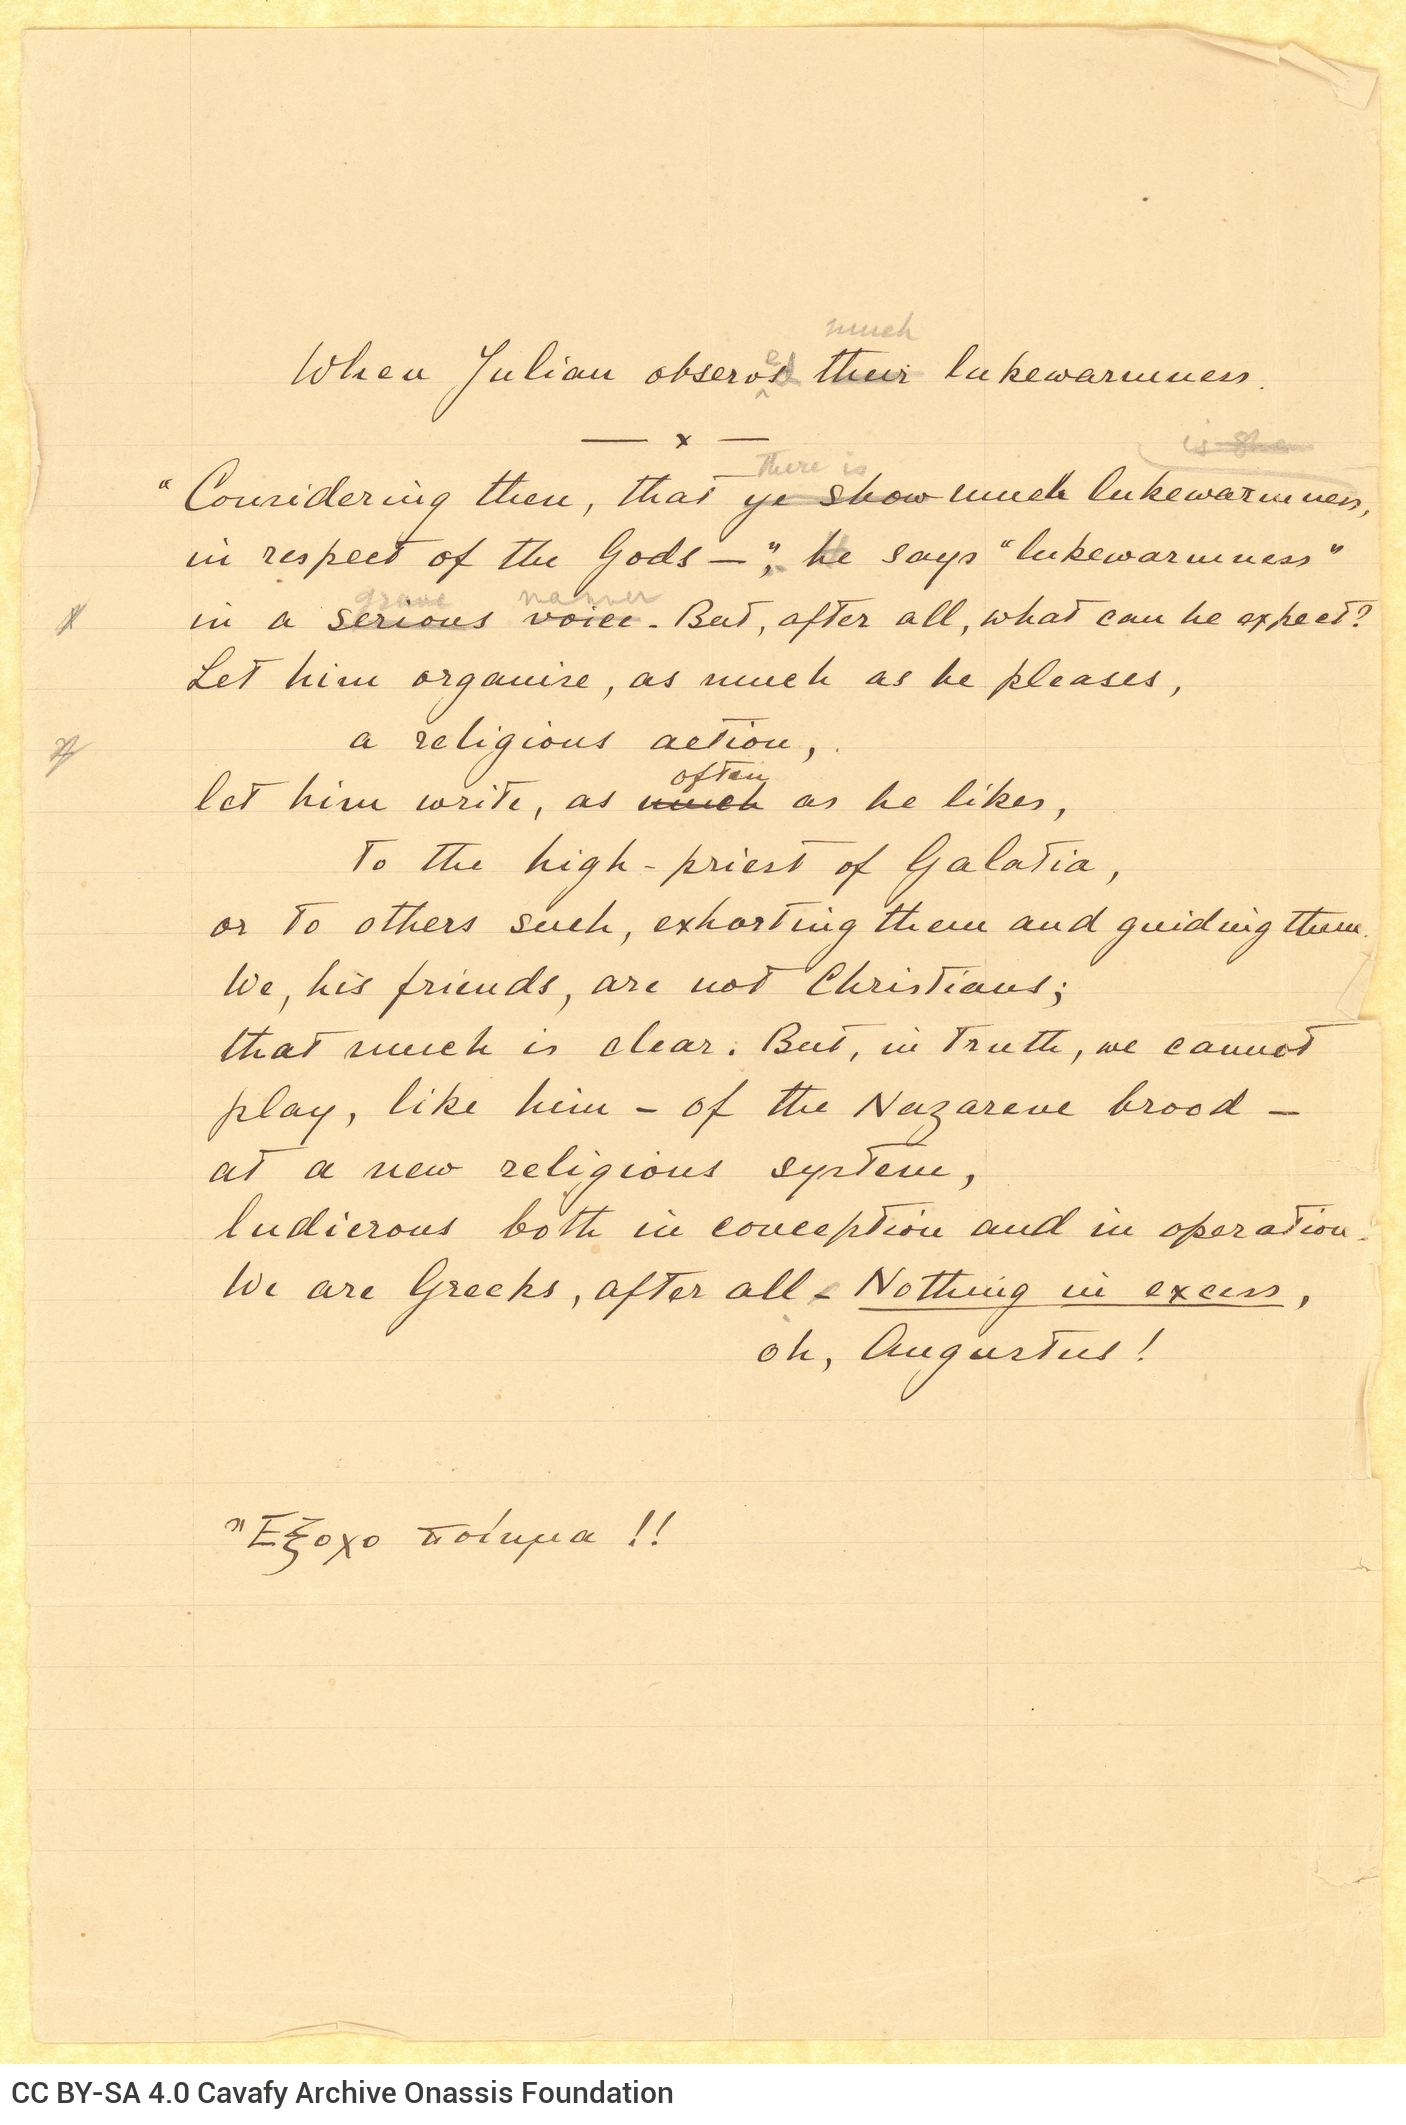 much
When Julian observed their lukewarmness.
— x —
is
there is
"Considering then, that ye show much lukewarmness,
in respect of the Gods —", he says "lukewarmness"
grave manner
x in a serious voice. But, after all, what can he expect?
Let him organise, as much as he pleases,
x a religious action,
often
let him write, as much as he likes,
to the high-priest of Galatia,
or to others such, exhorting them and guiding them.
We, his friends, are not Christians;
that much is clear. But, in truth, we cannot
play, like him – of the Nazarene brood –
at a new religious system,
ludicrous both in conception and in operation.
We are Greeks, after all – Nothing in excess,
oh, Augustus!
Ἔξοχο ποίημα !!
CC BY-SA 4.0 Cavafy Archive Onassis Foundation